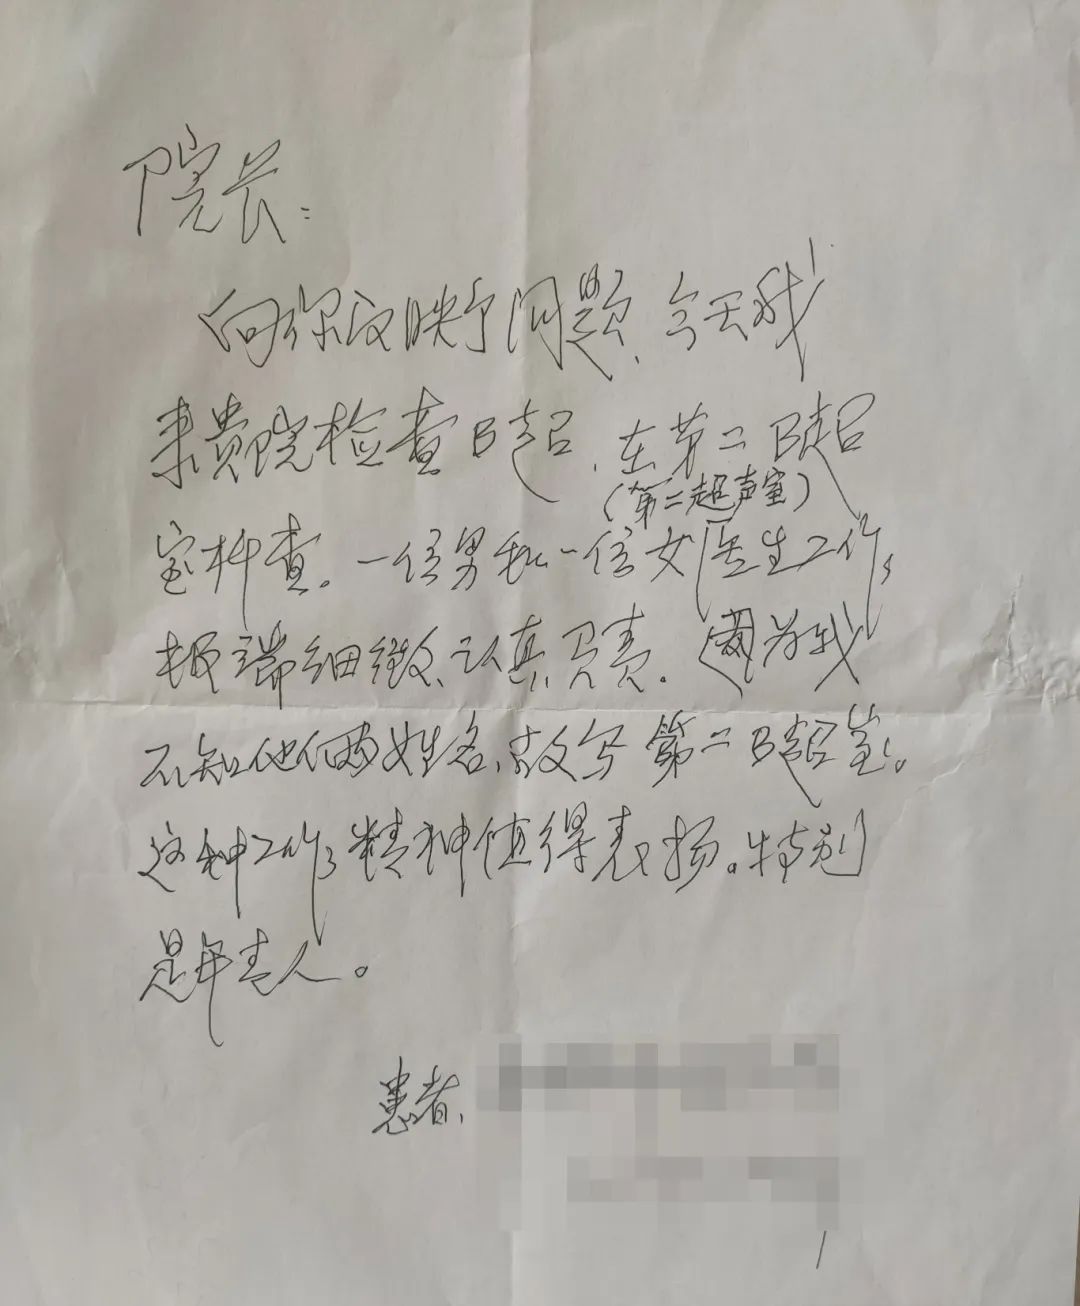 院长：
向你反映个问题，今天我
来贵院检查B超，在第二B超
（第二超声室）
室检查。一位男和一位女医生工作，
极端细微、认真，负责。因为我
不知他们两姓名，故写第二B超室。
这种工作精神值得表扬。特别
是年青人。
患者、